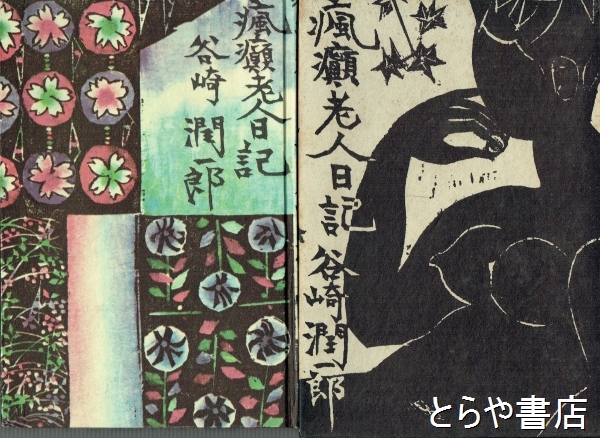 瘋癲老人日記
谷崎潤一郎
瘋癲老人日記 谷崎潤一郎
とらや書店